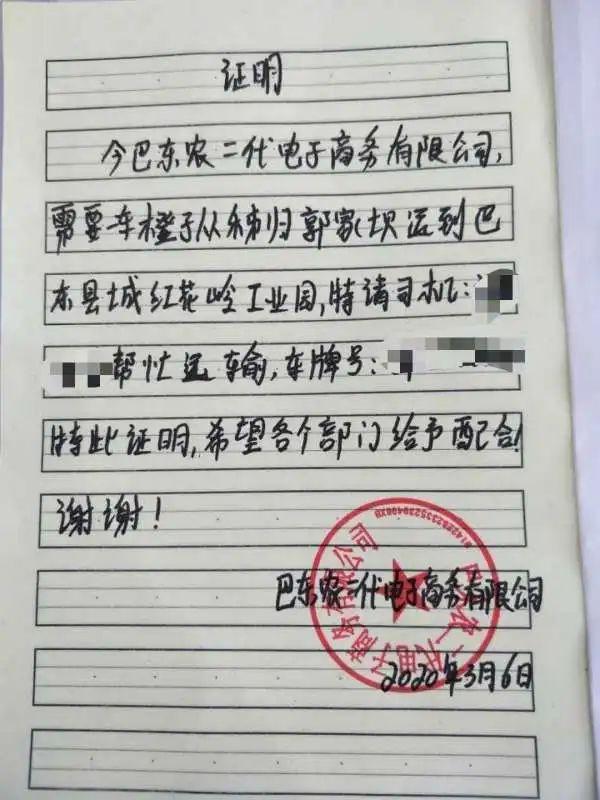 证明
今巴东农二代电子商务有限公司,
需要一车橙子从秭归郭家坝运到巴
东县城红花岭工业园,特请司机:
帮忙运输,车牌号:
特此证明,希望各个部门给予配合!
谢谢!
巴东农二代电子商务有限公司
2020年3月6日